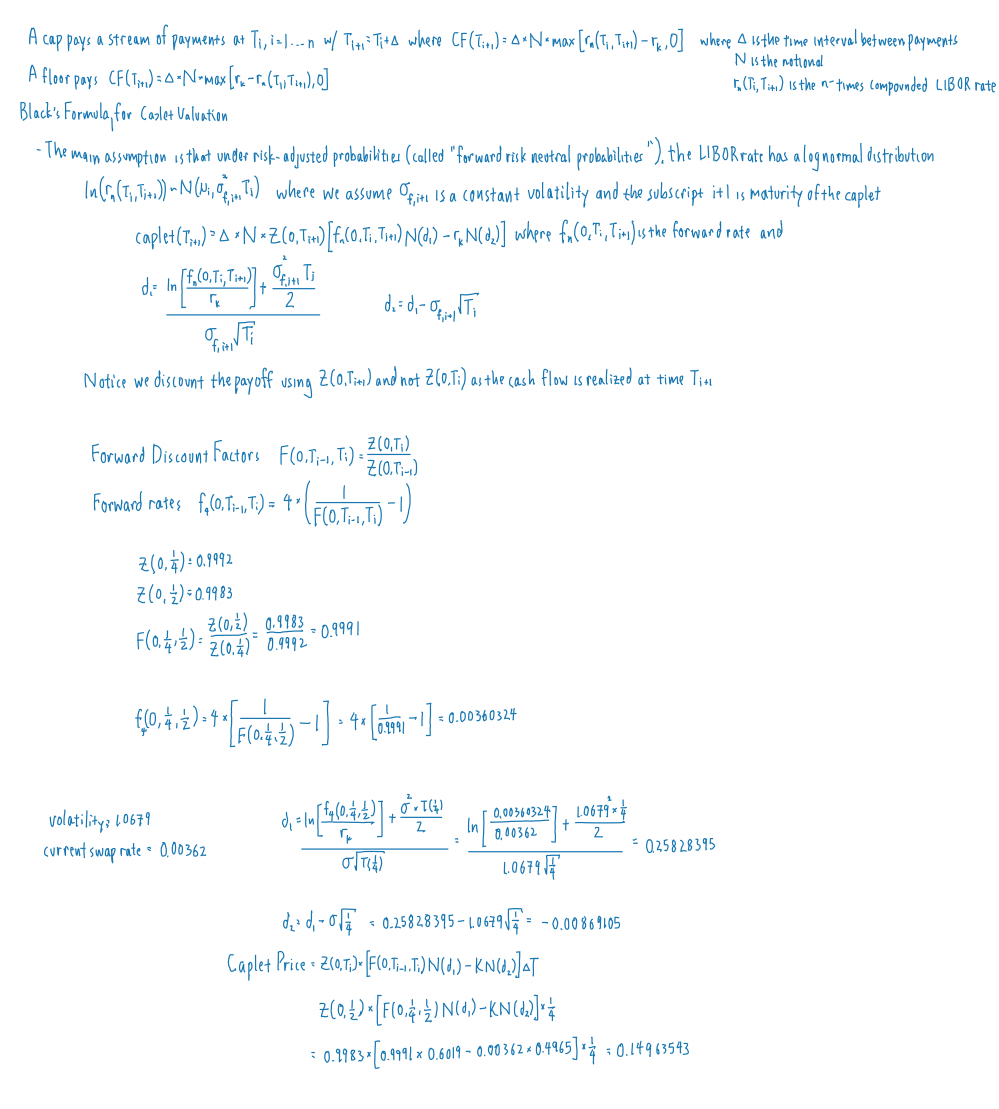 A cap pays a stream of payments at T_i, i=1...n w/ T_{i+1}=T_i+Δ where CF(T_{i+1})=Δ*N*max[r_n(T_i,T_{i+1})-r_k,0] where Δ is the time interval between payments
N is the notional
A floor pays CF(T_{i+1})=Δ*N*max[r_k-r_n(T_i,T_{i+1}),0]
r_n(T_i,T_{i+1}) is the n-times compounded LIBOR rate
Black's Formula for Caplet Valuation
- The main assumption is that under risk-adjusted probabilities (called "forward risk neutral probabilities"), the LIBOR rate has a lognormal distribution
ln(r_n(T_i,T_{i+1}))~N(μ_i,σ²_{f,i+1}T_i) where we assume σ_{f,i+1} is a constant volatility and the subscript i+1 is maturity of the caplet
caplet(T_{i+1})=Δ*N*Z(0,T_{i+1})[f_n(0,T_i,T_{i+1})N(d_1)-r_kN(d_2)] where f_n(0,T_i,T_{i+1}) is the forward rate and
d_1= (ln[f_n(0,T_i,T_{i+1})/r_k]+σ²_{f,i+1}T_i/2)/(σ_{f,i+1}√T_i) d_2=d_1-σ_{f,i+1}√T_i
Notice we discount the payoff using Z(0,T_{i+1}) and not Z(0,T_i) as the cash flow is realized at time T_{i+1}
Forward Discount Factors F(0,T_{i-1},T_i)=Z(0,T_i)/Z(0,T_{i-1})
Forward rates f_4(0,T_{i-1},T_i)=4*(1/F(0,T_{i-1},T_i)-1)
Z(0,1/4)=0.9992
Z(0,1/2)=0.9983
F(0,1/4,1/2)=Z(0,1/2)/Z(0,1/4)=0.9983/0.9992=0.9991
f_4(0,1/4,1/2)=4*[1/F(0,1/4,1/2)-1]=4*[1/0.9991-1]=0.00360324
volatility=1.0679
current swap rate=0.00362
d_1=(ln[f_4(0,1/4,1/2)/r_k]+σ²*T(1/4)/2)/(σ√T(1/4))=(ln[0.00360324/0.00362]+1.0679²*1/4/2)/(1.0679√1/4)=0.25828395
d_2=d_1-σ√1/4=0.25828395-1.0679√1/4=-0.00869105
Caplet Price=Z(0,T_i)*[F(0,T_{i-1},T_i)N(d_1)-KN(d_2)]ΔT
Z(0,1/2)*[F(0,1/4,1/2)N(d_1)-KN(d_2)]*1/4
=0.9983*[0.9991×0.6019-0.00362×0.4965]*1/4=0.14963543